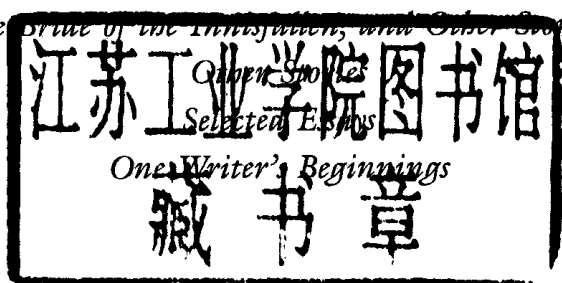 Bride of the Innisfallen, and Other
江苏工业学院图书馆
Other Stories
Selected Essays
One Writer's Beginnings
藏书章